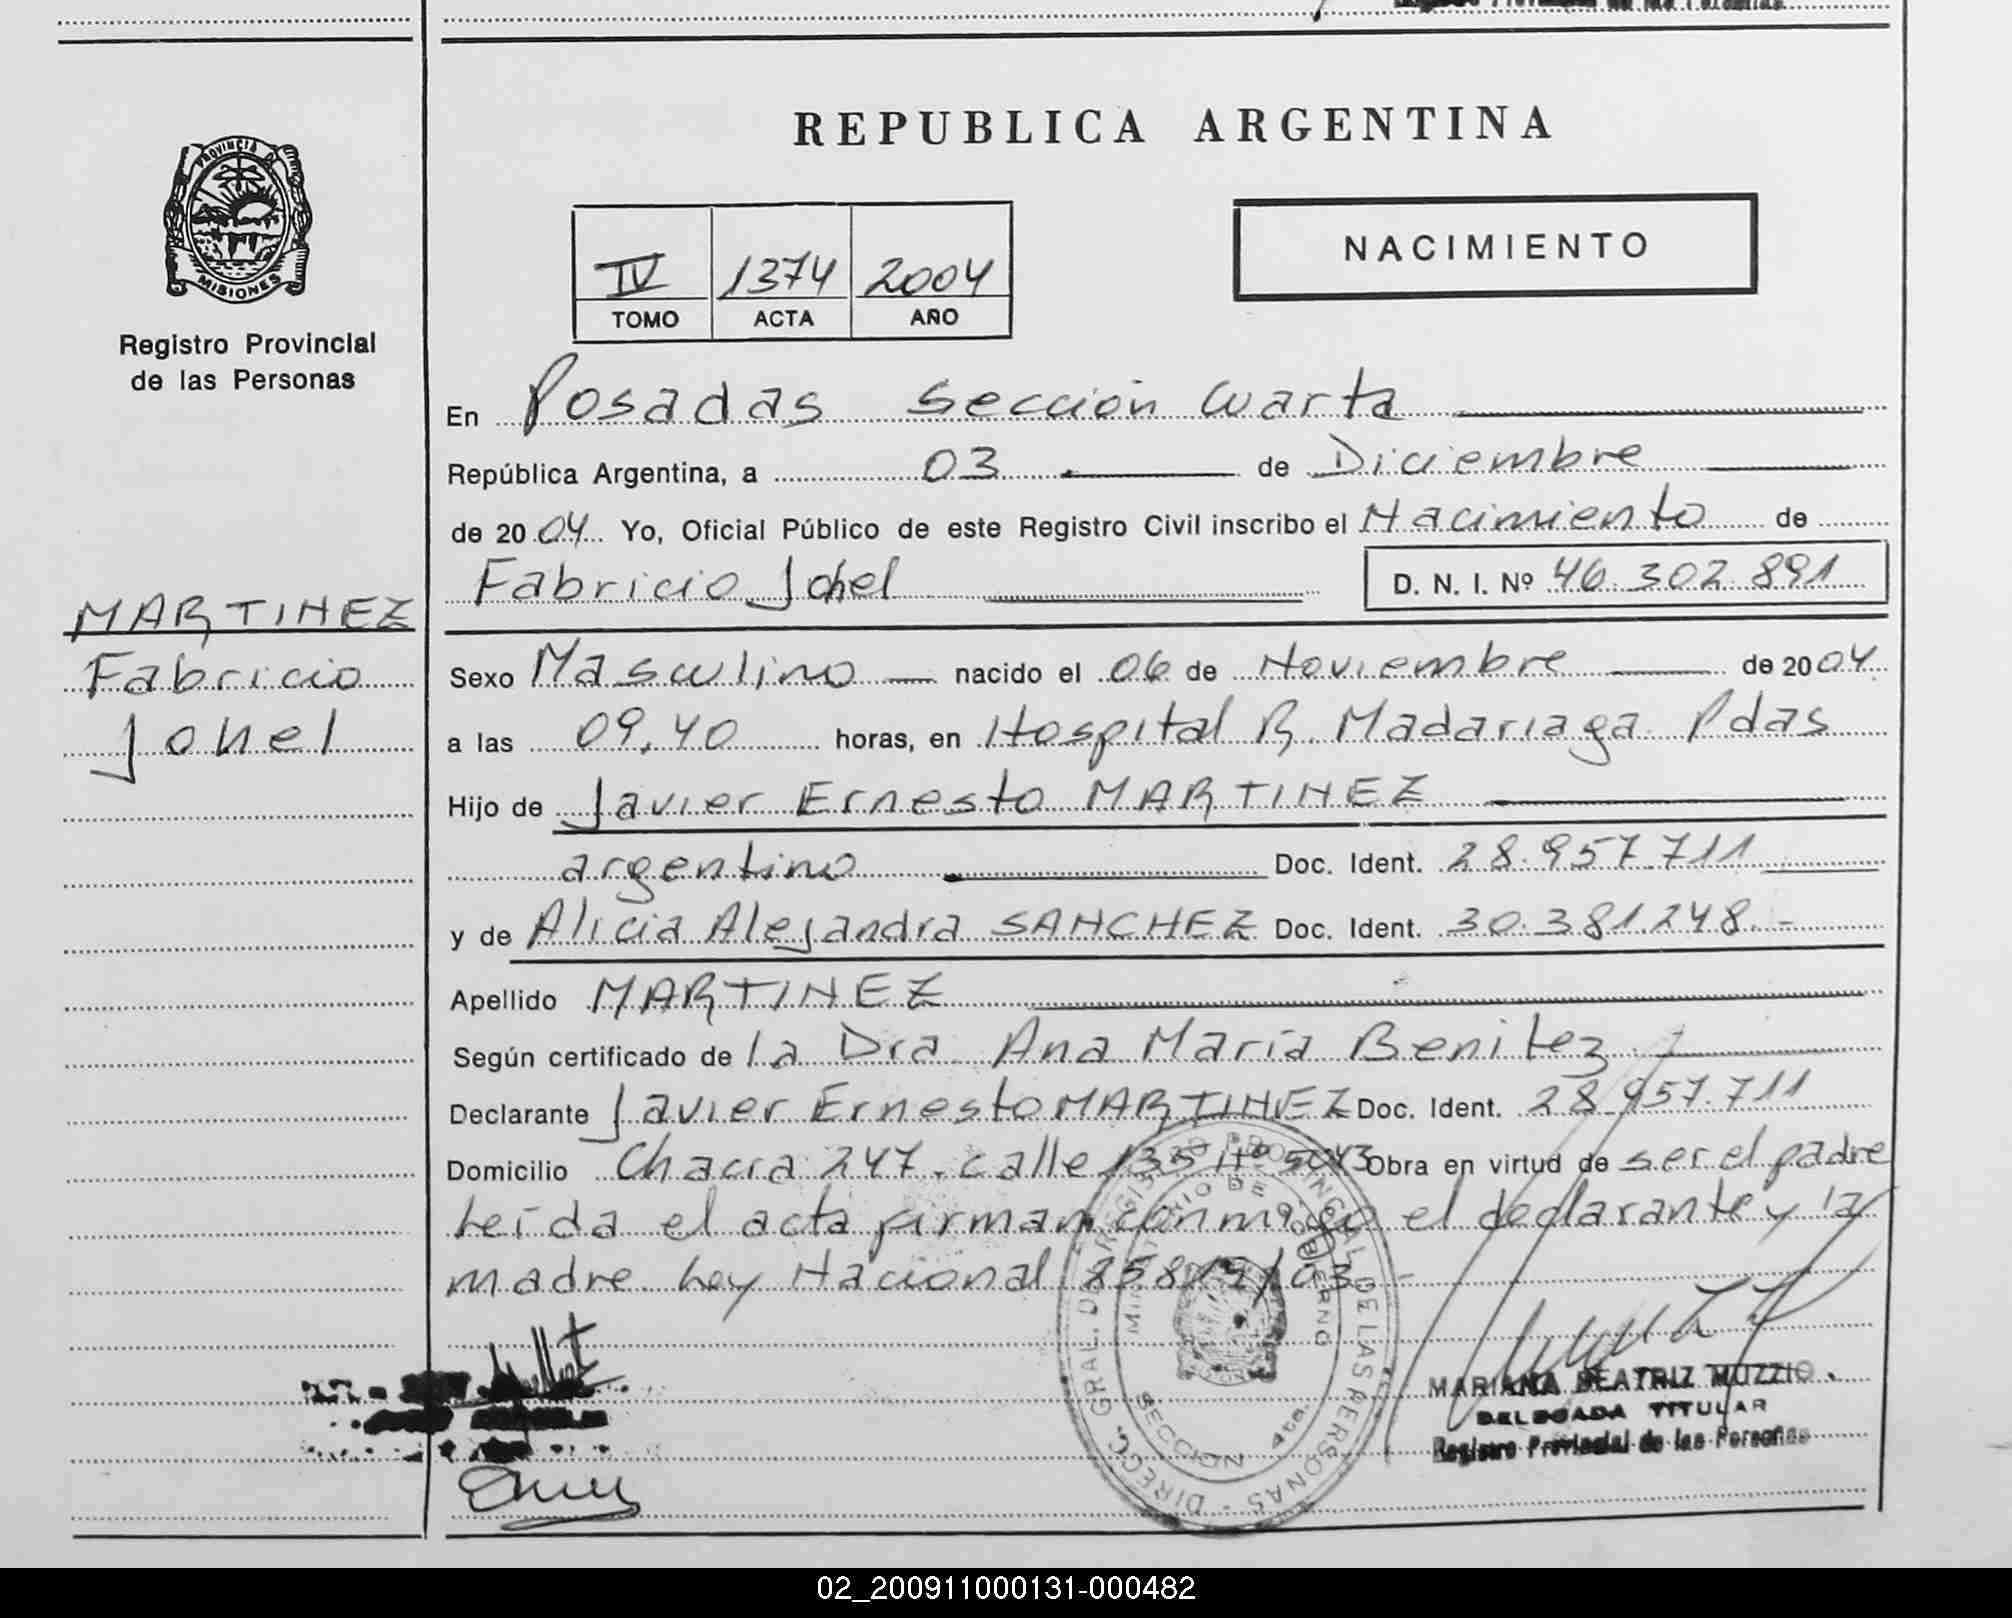 REPUBLICA ARGENTINA
PROVINCIA DE
MISIONES
Registro Provincial
de las Personas
IV 1374 2004
TOMO ACTA AÑO
NACIMIENTO
En Posadas Sección Cuarta
República Argentina, a 03 de Diciembre
de 2004 Yo, Oficial Público de este Registro Civil inscribo el Nacimiento de
Fabricio Johel D. N. I. Nº 46.302.891
MARTINEZ
Fabricio
Johel
Sexo Masculino nacido el 06 de Noviembre de 2004
a las 09,40 horas, en Hospital R. Madariaga Pdas
Hijo de Javier Ernesto MARTINEZ
argentino Doc. Ident. 28.957.711
y de Alicia Alejandra SANCHEZ Doc. Ident. 30.381.248.-
Apellido MARTINEZ
Según certificado de la Dra Ana María Benitez
Declarante Javier Ernesto MARTINEZ Doc. Ident. 28.957.711
Domicilio Chacra 247. calle 135 Nº 5043 Obra en virtud de ser el padre
Leída el acta firman conmigo el declarante y la
madre Ley Nacional 25819/03
DIRECC. GRAL. DEL REGISTRO PROVINCIAL DE LAS PERSONAS
MINISTERIO DE GOBIERNO
SECCION 4ta.
MARIANA BEATRIZ MUZZIO
DELEGADA TITULAR
Registro Provincial de las Personas
02_200911000131-000482